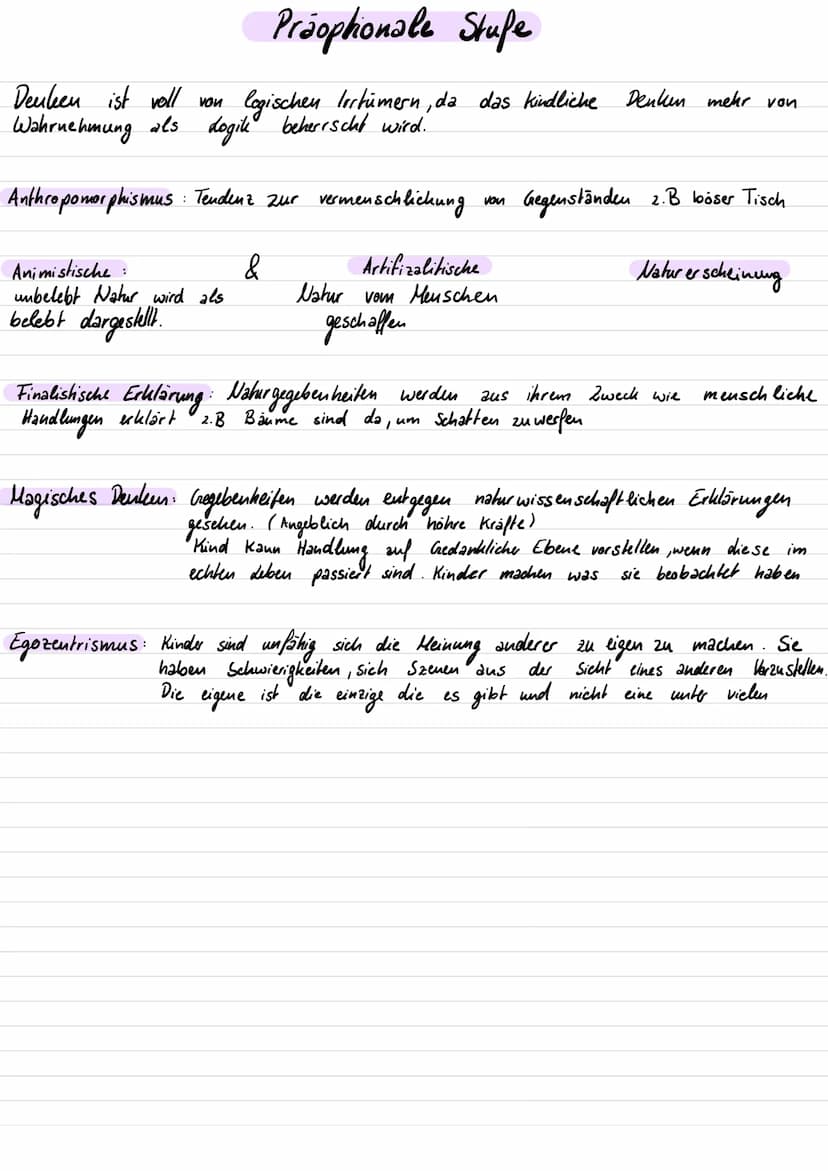 Präoptionale Stufe
Denken ist voll von logischen Irrtümern, da das kindliche Denken mehr von
Wahrnehmung als Logik beherrscht wird.
Anthropomorphismus : Tendenz zur vermenschlickung von Gegenständen z.B böser Tisch
Animistische : & Artifizalitische Naturerscheinung
unbelebt Natur wird als Natur vom Menschen
belebt dargestellt. geschaffen
Finalistische Erklärung : Naturgegebenheiten werden aus ihrem Zweck wie menschliche
Handlungen erklärt z.B Bäume sind da, um Schatten zu werfen
Magisches Denken : Gegebenheiten werden entgegen naturwissenschaftlichen Erklärungen
gesehen. (Angeblich durch höhre Kräfte)
Kind kann Handlung auf Gedankliche Ebene vorstellen, wenn diese im
echten Leben passiert sind. Kinder machen was sie beobachtet haben
Egozentrismus : Kinder sind unfähig sich die Meinung anderer zu eigen zu machen. Sie
haben Schwierigkeiten, sich Szenen aus der Sicht eines anderen Vorzustellen.
Die eigene ist die einzige die es gibt und nicht eine unter vielen